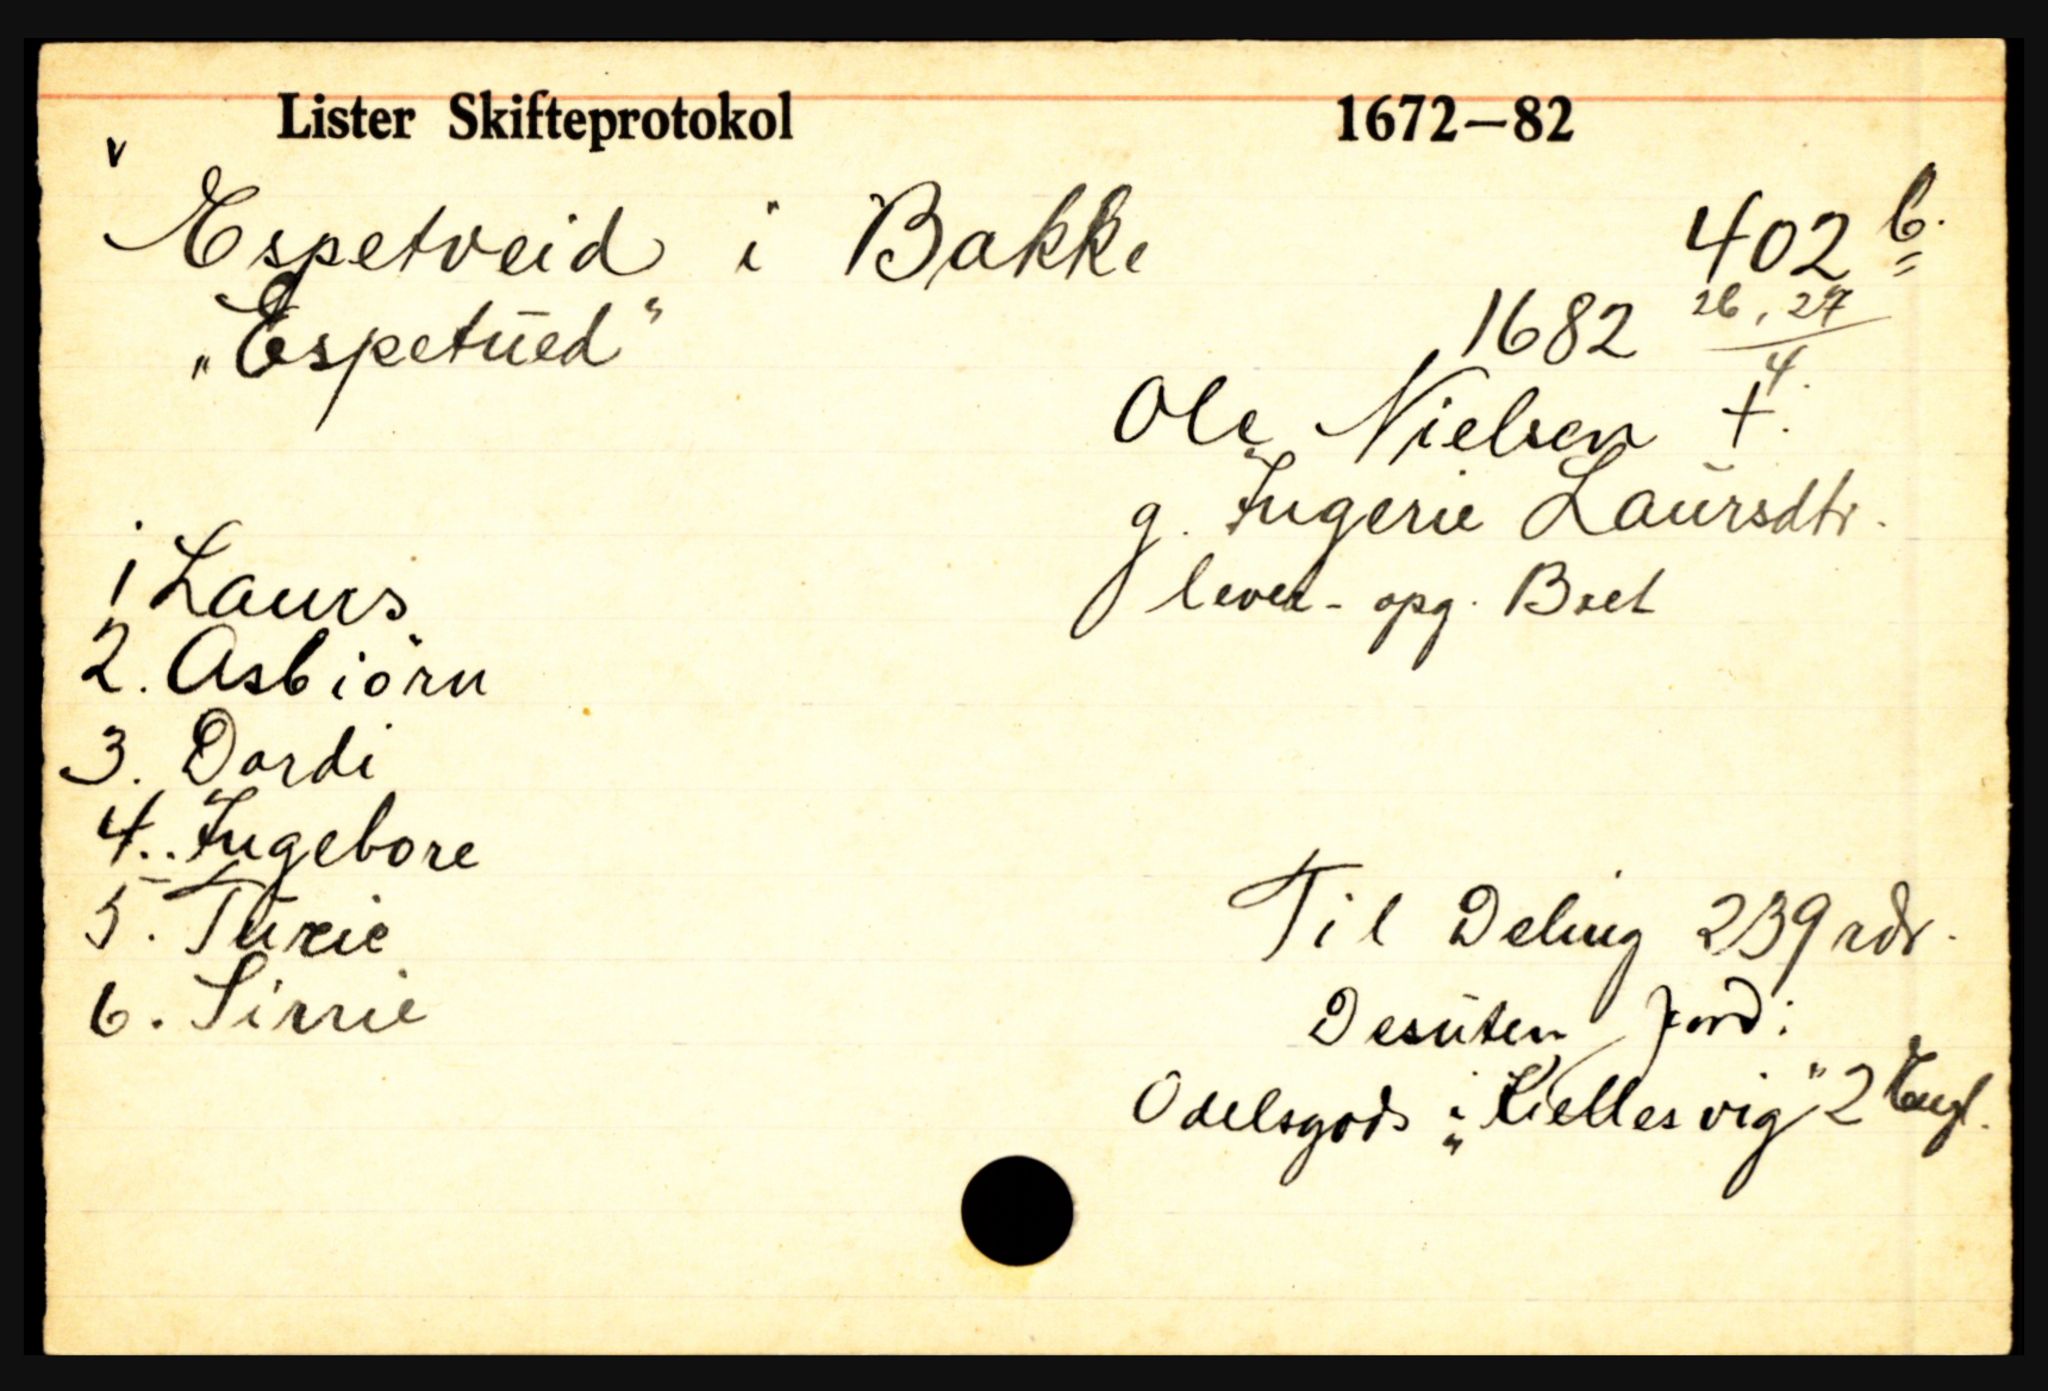 Lister Skifteprotokol 1672-82
v
Espetveid i Bakke 402 b.
"Espetŭed" 1682 26, 27/4.
Ole Nielsen †.
g. Ingerie Laŭrsdtr.
lever - opg. Boet
1 Laurs
2. Asbiörn
3. Dordi
4. Ingebore
5. Tŭrie
6. Sirrie
Til Deling 239 rdr.
Desŭten Jord:
Odelsgods i "Kiellesvig" 2 Engl.